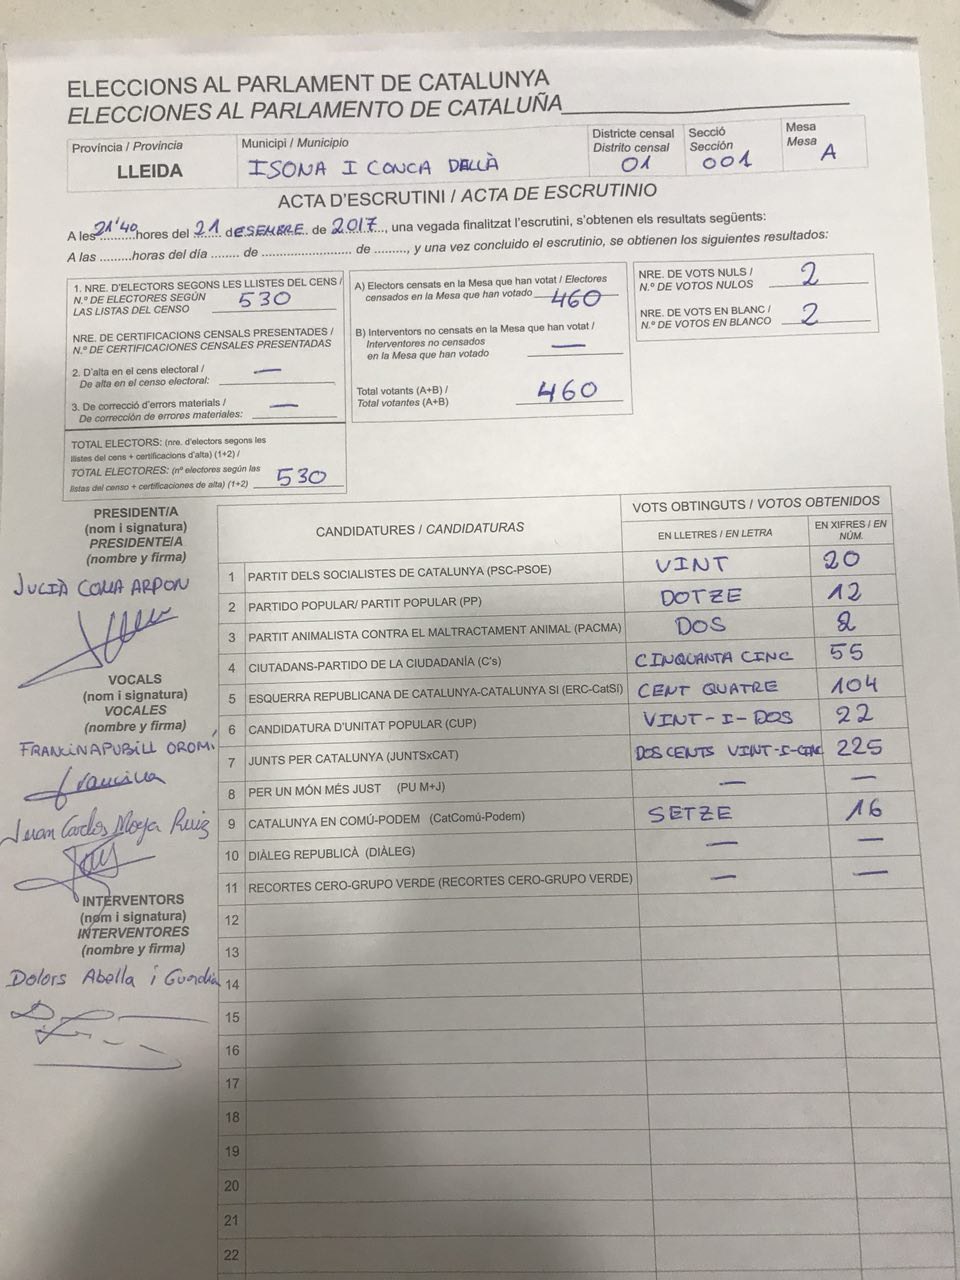 ELECCIONS AL PARLAMENT DE CATALUNYA
ELECCIONES AL PARLAMENTO DE CATALUÑA
Província / Provincia
LLEIDA
Municipi / Municipio
ISONA I CONCA DELLÀ
Districte censal
Distrito censal
01
Secció
Sección
001
Mesa
Mesa
A
ACTA D'ESCRUTINI / ACTA DE ESCRUTINIO
A les 21'40 hores del 21 dESEMBRE de 2017, una vegada finalitzat l'escrutini, s'obtenen els resultats següents:
A las .........horas del día ........ de ........................ de ........., y una vez concluido el escrutinio, se obtienen los siguientes resultados:
1. NRE. D'ELECTORS SEGONS LES LLISTES DEL CENS /
N.º DE ELECTORES SEGÚN
LAS LISTAS DEL CENSO 530
NRE. DE CERTIFICACIONS CENSALS PRESENTADES /
N.º DE CERTIFICACIONES CENSALES PRESENTADAS
2. D'alta en el cens electoral /
De alta en el censo electoral: —
3. De correcció d'errors materials /
De corrección de errores materiales: —
TOTAL ELECTORS: (nre. d'electors segons les
llistes del cens + certificacions d'alta) (1+2) /
TOTAL ELECTORES: (nº electores según las
listas del censo + certificaciones de alta) (1+2) 530
A) Electors censats en la Mesa que han votat / Electores
censados en la Mesa que han votado 460
B) Interventors no censats en la Mesa que han votat /
Interventores no censados
en la Mesa que han votado —
Total votants (A+B) /
Total votantes (A+B) 460
NRE. DE VOTS NULS /
N.º DE VOTOS NULOS 2
NRE. DE VOTS EN BLANC /
N.º DE VOTOS EN BLANCO 2
PRESIDENT/A
(nom i signatura)
PRESIDENTE/A
(nombre y firma)
JULIÀ COMA ARPON
VOCALS
(nom i signatura)
VOCALES
(nombre y firma)
FRANCINA PUBILL OROMÍ
Francina
Juan Carlos Moya Ruiz
INTERVENTORS
(nom i signatura)
INTERVENTORES
(nombre y firma)
Dolors Abella i Guardia
CANDIDATURES / CANDIDATURAS
VOTS OBTINGUTS / VOTOS OBTENIDOS
EN LLETRES / EN LETRA
EN XIFRES / EN NÚM.
1 PARTIT DELS SOCIALISTES DE CATALUNYA (PSC-PSOE) VINT 20
2 PARTIDO POPULAR/ PARTIT POPULAR (PP) DOTZE 12
3 PARTIT ANIMALISTA CONTRA EL MALTRACTAMENT ANIMAL (PACMA) DOS 2
4 CIUTADANS-PARTIDO DE LA CIUDADANÍA (C's) CINQUANTA CINC 55
5 ESQUERRA REPUBLICANA DE CATALUNYA-CATALUNYA SÍ (ERC-CatSí) CENT QUATRE 104
6 CANDIDATURA D'UNITAT POPULAR (CUP) VINT-I-DOS 22
7 JUNTS PER CATALUNYA (JUNTSxCAT) DOS CENTS VINT-I-CINC 225
8 PER UN MÓN MÉS JUST (PU M+J) — —
9 CATALUNYA EN COMÚ-PODEM (CatComú-Podem) SETZE 16
10 DIÀLEG REPUBLICÀ (DIÀLEG) — —
11 RECORTES CERO-GRUPO VERDE (RECORTES CERO-GRUPO VERDE) — —
12
13
14
15
16
17
18
19
20
21
22